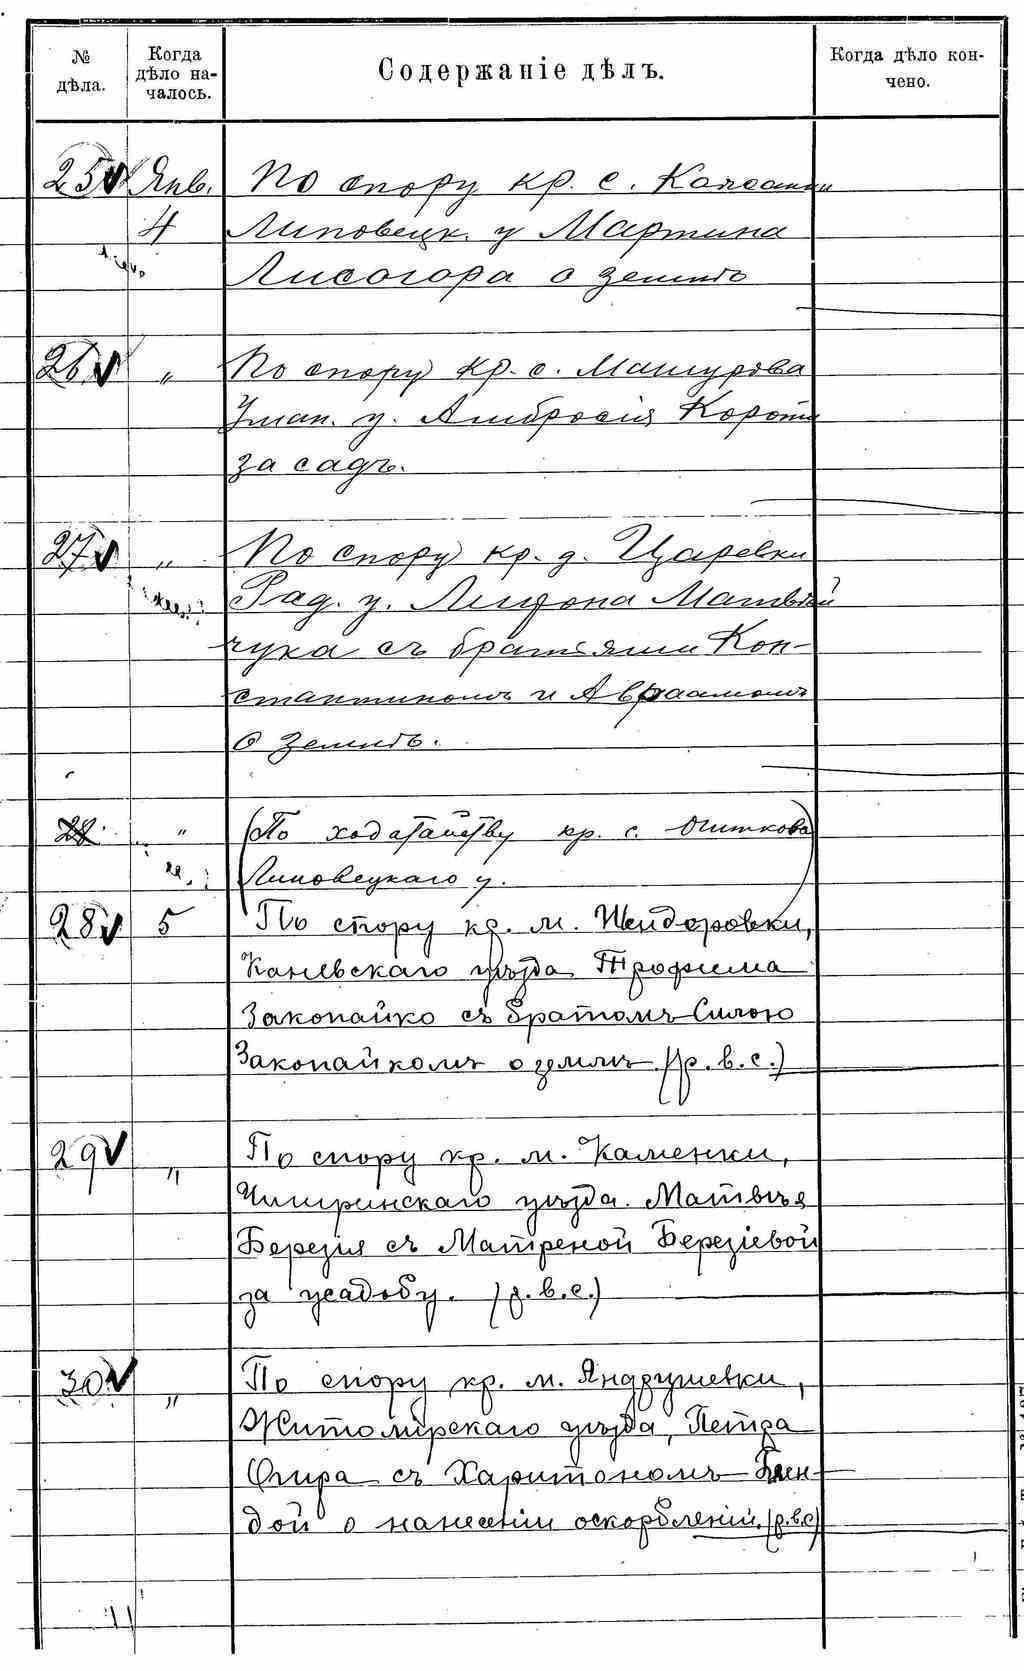 № дѣла.
Когда дѣло на-
чалось.
Содержаніе дѣлъ.
Когда дѣло кон-
чено.
25 Янв. По спору кр. с.
4 Липовецк. у Мартина
Лисогора о землѣ
26 " По спору кр. с. Машурова
Уман. у. Амбросія
за садъ.
27 " По спору кр. д. Царевки
Рад. у. Матвѣй
чука съ братьями Кон-
стантиномъ и Авраамомъ
о землѣ.
28 " (По ходатайству кр. с.
Липовецкаго у.
28 5 По спору кр. м. Шендеровки,
Каневскаго уѣзда Трофима
Закопайко съ братомъ Силою
Закопайкомъ о землѣ (р.в.с.)
29 " По спору кр. м. Каменки,
Чигиринскаго уѣзда. Матвѣя
Березія съ Матреной Березіевой
за усадьбу. (р.в.с.)
30 " По спору кр. м. Яндрушевки,
Житомірскаго уѣзда, Петра
Огира съ Харитономъ
дой о нанесеніи оскорбленій. (р.в.с)